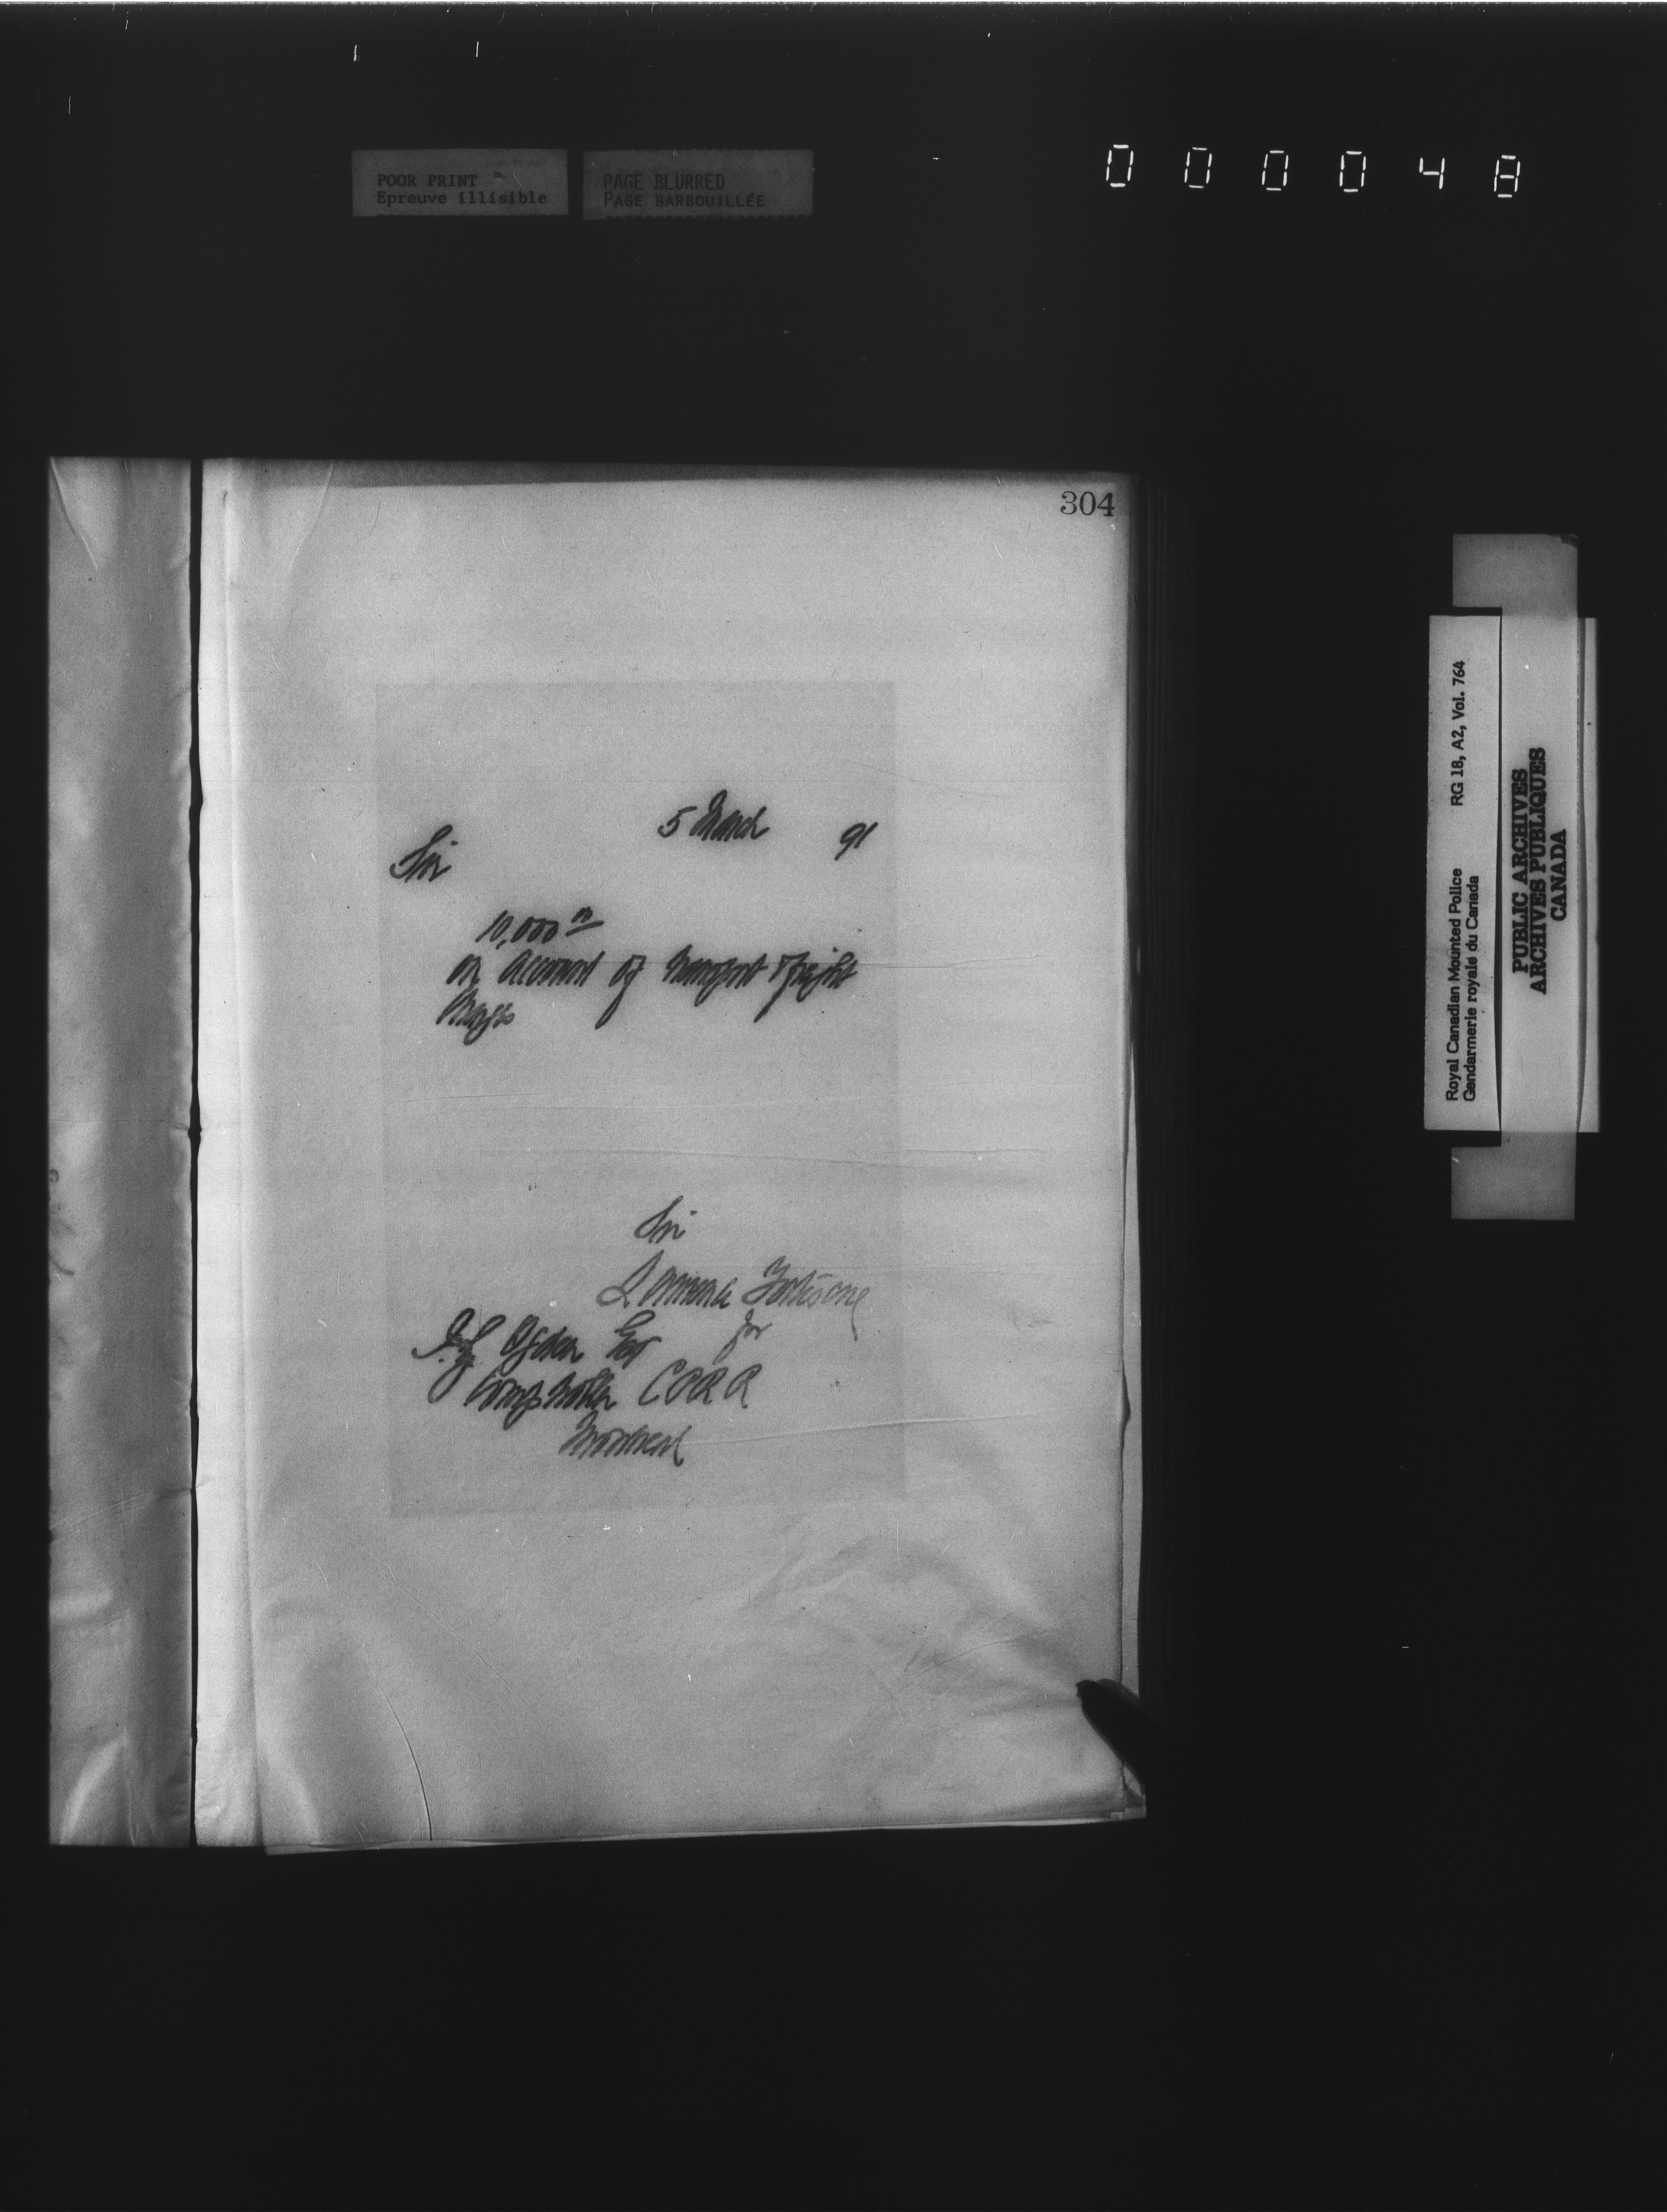 POOR PRINT
Epreuve illisible
PAGE BLURRED
PAGE BARBOUILLÉE
000048
304
5 March 91
Sir
10,000
on account of transport & freight
Sir
Lawrence Fortescue
for
I. G. Ogden Esq
Comptroller C P R R
Montreal
Royal Canadian Mounted Police RG 18, A2, Vol. 764
Gendarmerie royale du Canada
PUBLIC ARCHIVES
ARCHIVES PUBLIQUES
CANADA